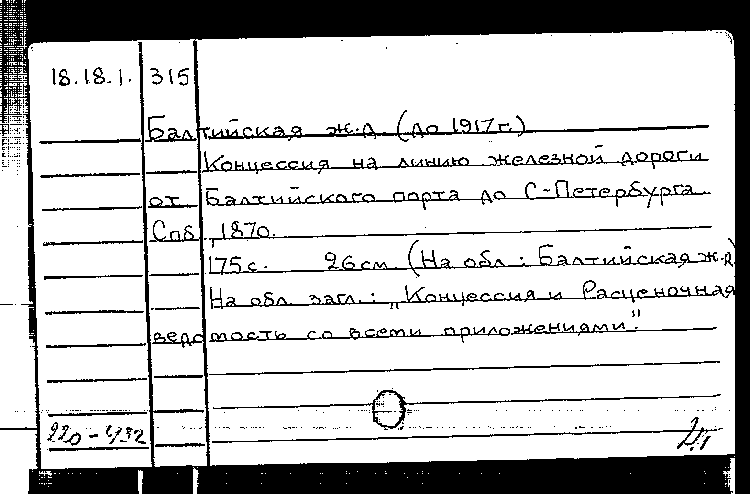 18.18.1. 315
Балтийская ж.д (до 1917г.)
Концессия на линию железной дороги
от Балтийского порта до С-Петербурга
Спб, 1870.
175с. 26см. (На обл: Балтийская ж.д)
На обл загл.: „Концессия и Расценочная
ведомость со всеми приложениями".
220-4/32